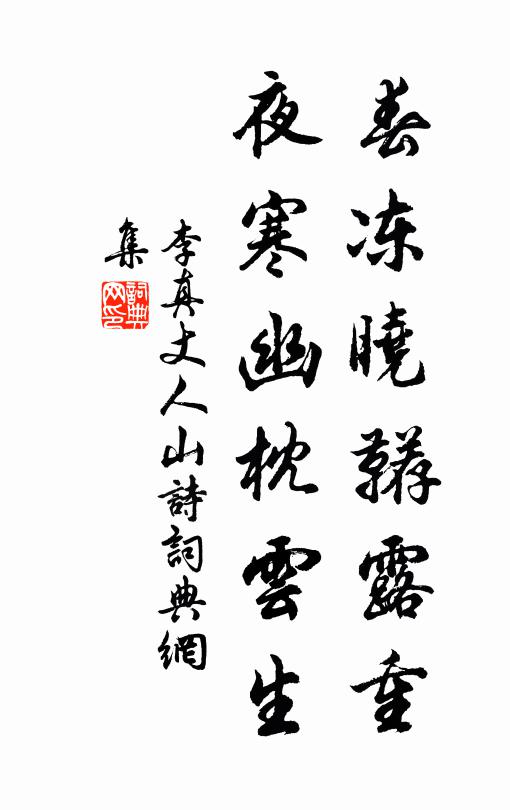 春冻曉鞯露重
夜寒幽枕雲生
李真丈人山詩詞典網
集
詞典
网印